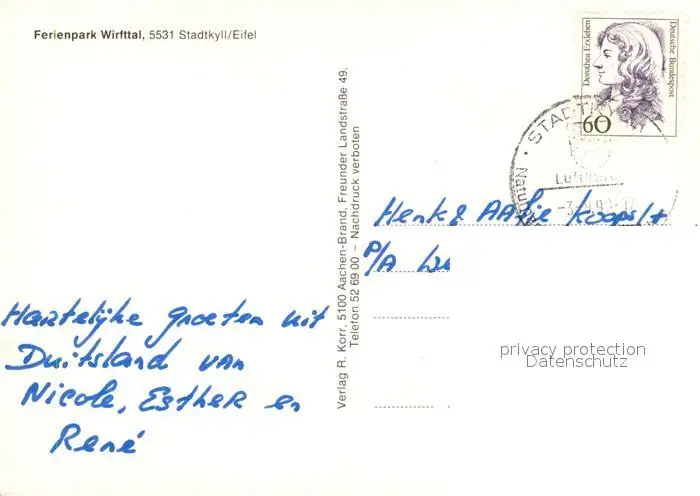 Ferienpark Wirfttal, 5531 Stadtkyll/Eifel
Dorothea Erxleben
Deutsche Bundespost
60
Verlag R. Korr, 5100 Aachen-Brand, Freunder Landstraße 49,
Telefon 52 69 00 – Nachdruck verboten
Henk & Aafje
P/A
Hartelijke groeten uit
Duitsland van
Nicole, Esther en
René
privacy protection
Datenschutz